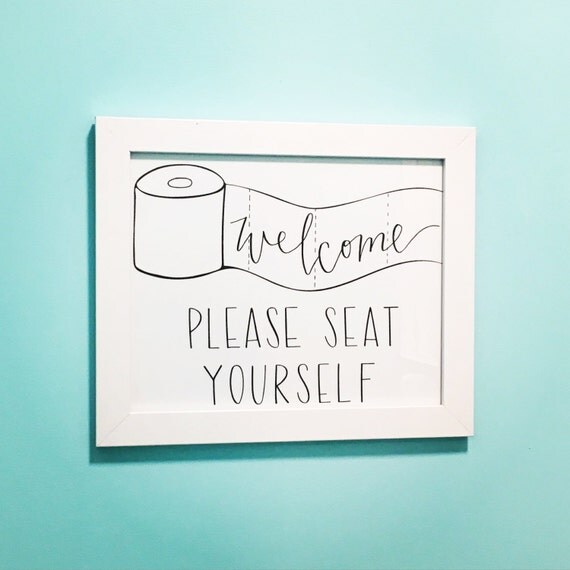 welcome
PLEASE SEAT
YOURSELF